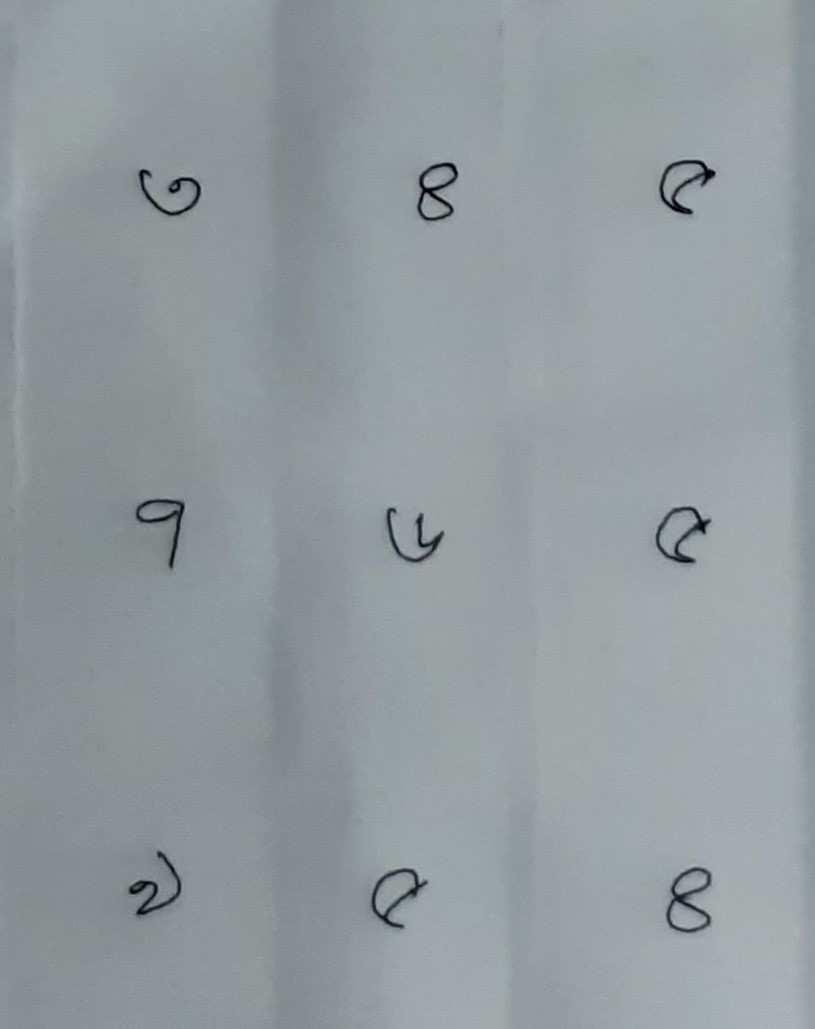 ৩ ৪ ৫
৭ ৬ ৫
৯ ৫ ৪